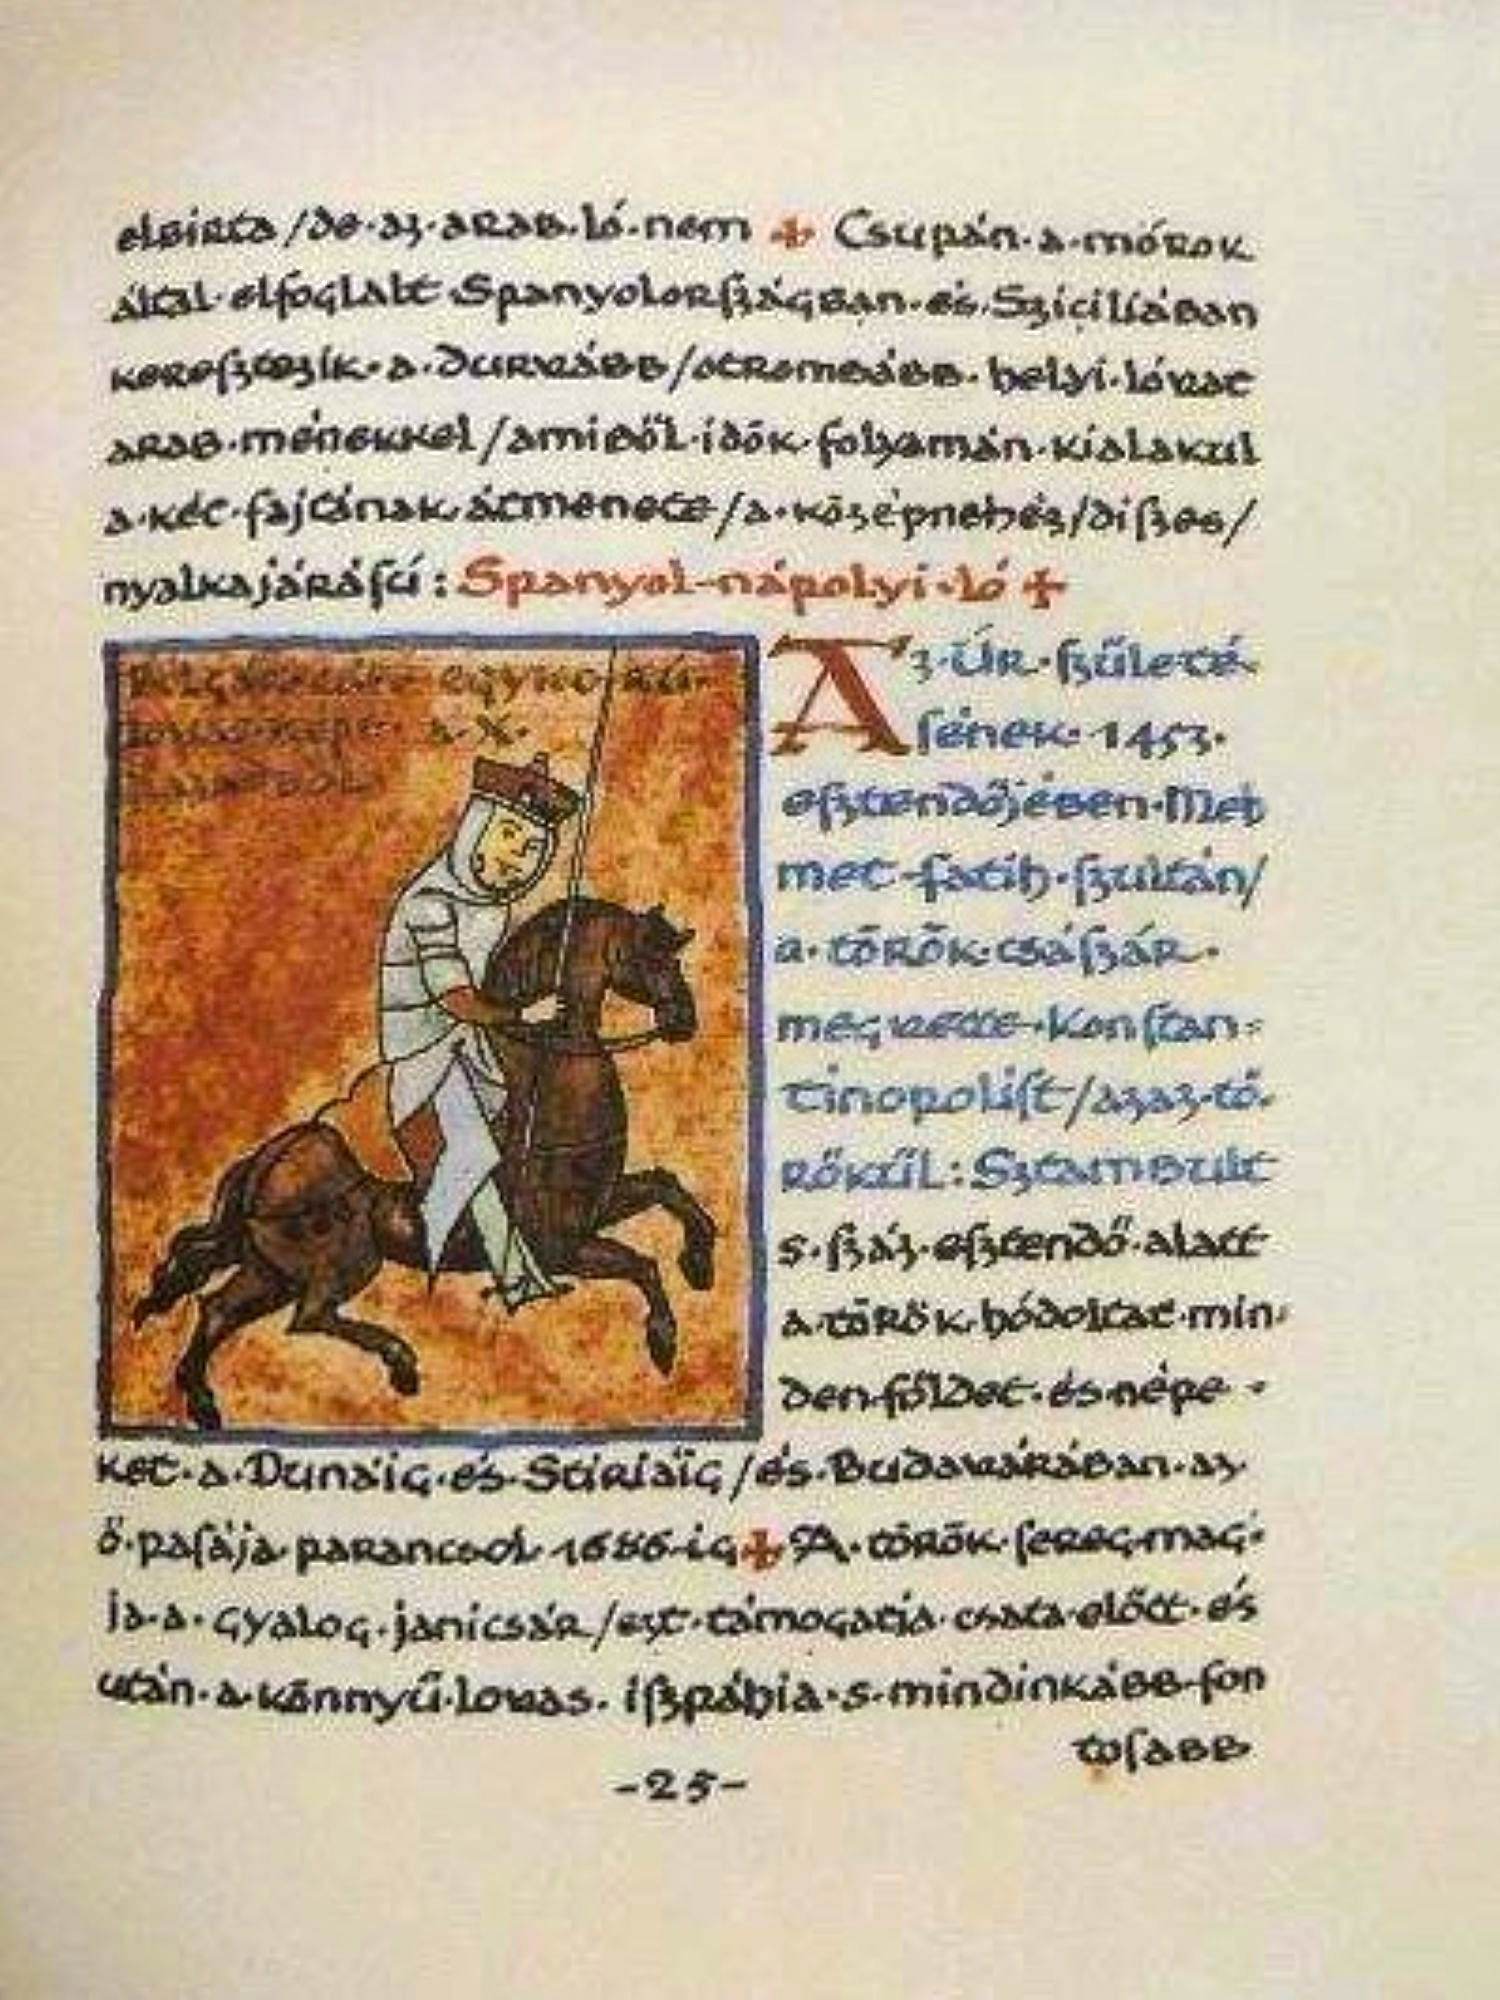 elbirta / de · az · arab · ló · nem ✠ Csupán · a · mórok
által · elfoglalt · Spanyolorſzágban · és · Sziciliában
kereſztezik · a · durvább / otrombább · helyi · lóvat
arab · ménekkel / amiből · idők · folyamán · kialakul
a · két · fajtának · átmenete / a · középnehéz / díſzes /
nyalkajáráſú : Spanyol-nápolyi · ló ✠
egykorú
kepe · a · X.
Az · Úr · ſzületé
ſének · 1453 ·
eſztendőjében · Meh
met · fatih · ſzultán /
a · török · cſáſzár ·
megvette · Konſtan-
tinopoliſt / azaz · tö-
rökűl : Sztambult
s · ſzáz · eſztendő · alatt
a · török · hódoltat · min-
den · földet · és · népe -
ket · a · Dunáig · és · Stiriáig / és · Budavárában · az
ő · paſája · parancsol · 1686-ig ✠ A · török · ſereg · mag-
ja · a · gyalog · janicsár / ezt · támogatja · csata · előtt · és
után · a · könnyű · lovas · iſzpáhia · s · mindinkább · fon
toſabb
-25-